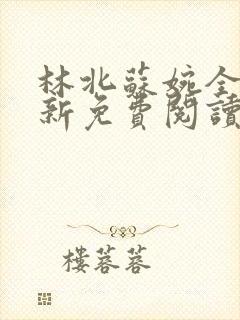 林北蘇婉全
新免費閱讀
樓蓉蓉